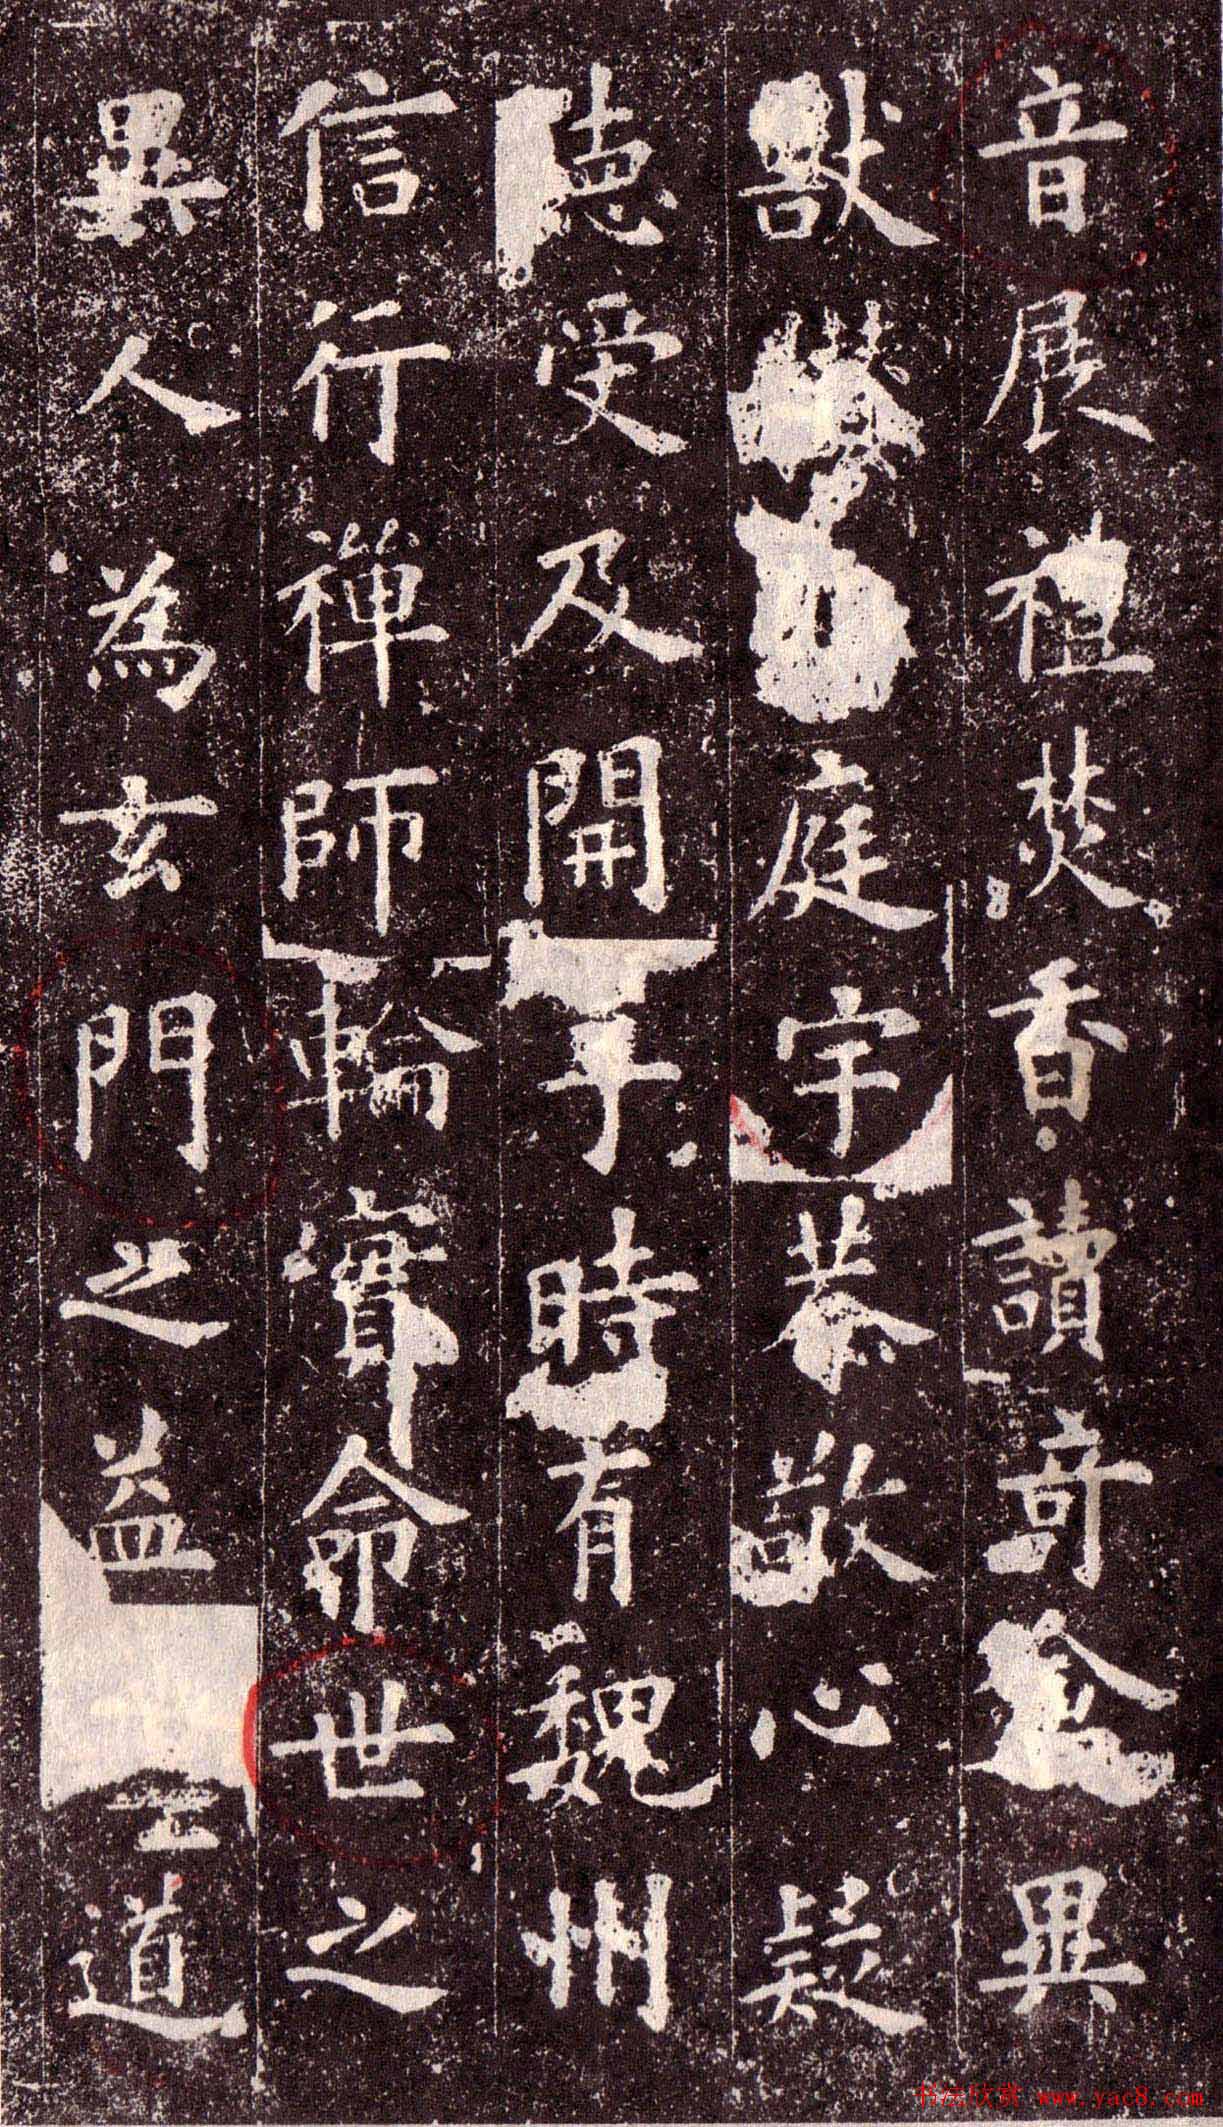 音展禮焚香讀奇禽異
獸 庭宇恭敬心疑
德受及開手時有魏州
信行禪師輪寶命世之
異人為玄門之益 道
书法欣赏 www.yac8.com